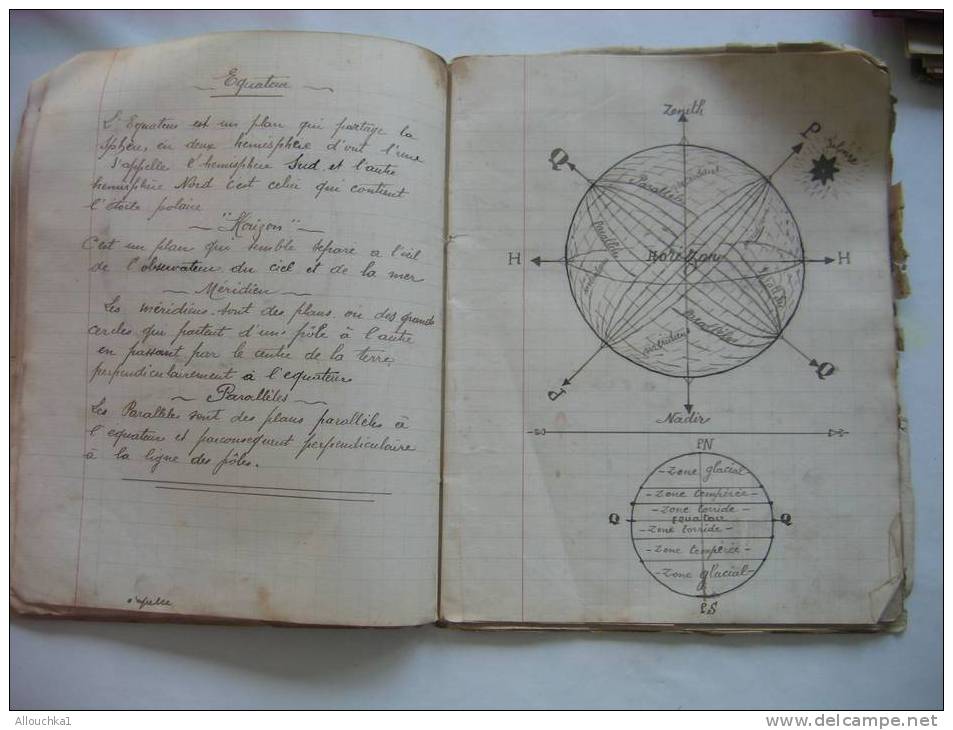 Equateur
L'Equateur est un plan qui partage la
sphère en deux hemisphère d'ont l'une
s'appelle l'hemisphère Sud et l'autre
hemisphère Nord c'est celui qui contient
l'étoile polaire
"Horizon"
C'est un plan qui semble séparé a l'œil
de l'observateur du ciel et de la mer
Méridien
Les méridiens sont des plans ou des grands
cercles qui partait d'un pôle à l'autre
en passant par le centre de la terre
perpendiculairement à l'equateur
Parallèles
Les Parallèles sont des plans parallèles à
l'equateur et parconsequent perpendiculaire
à la ligne des pôles.
Zenith
P
Polaire
Q
Parallèles
méridiens
H
Horizon
H
parallèles
méridien
P
Q
Nadir
PN
Zone glacial
Zone tempérée
Zone torride
Q
Equateur
Q
Zone torride
Zone tempérée
Zone glacial
P.S
Allouchka1
www.delcampe.net